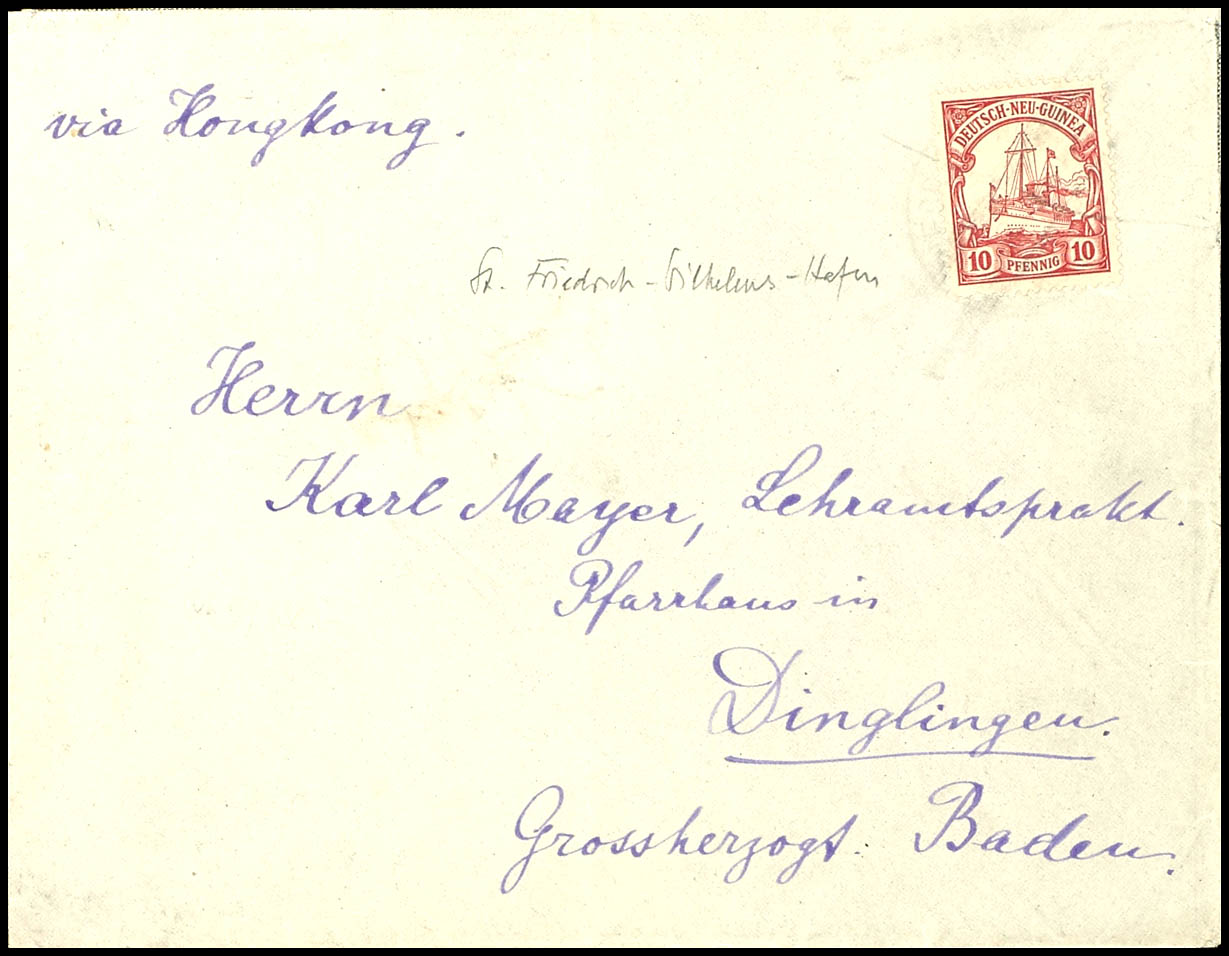 via Hongkong.
DEUTSCH-NEU-GUINEA
10 PFENNIG 10
St. Friedrich-Wilhelms-Hafen
Herrn
Karl Mayer, Lehramtsprakt.
Pfarrhaus in
Dinglingen.
Grossherzogt. Baden.